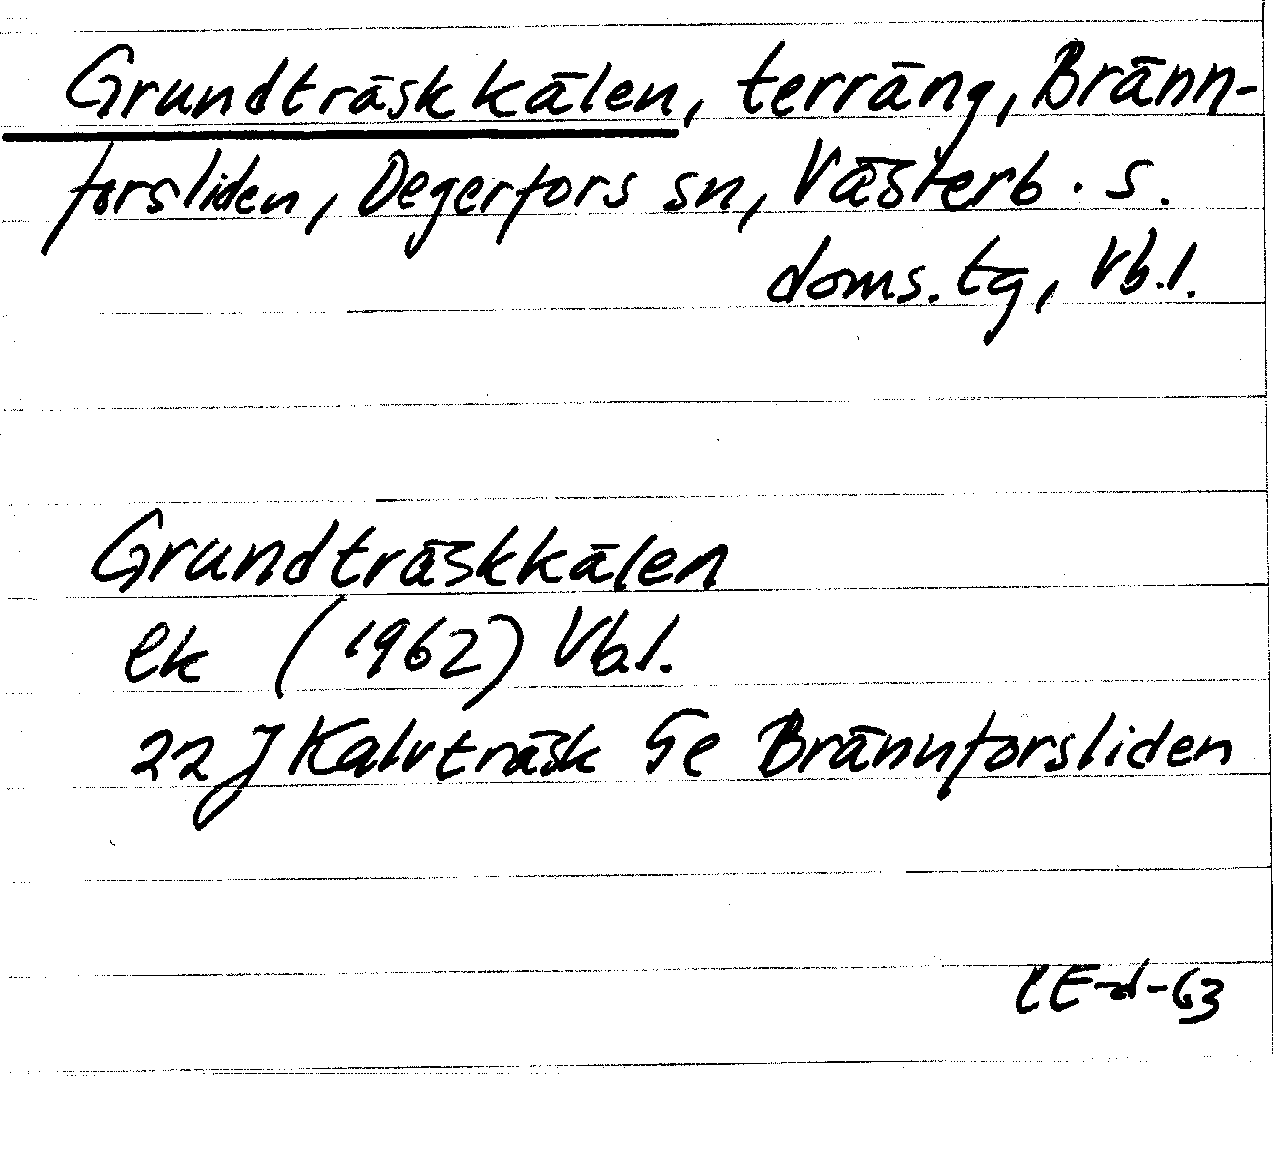 Grundträskkälen, terräng, Bränn-
forsliden, Degerfors sn, Västerb. s.
doms. tg, Vb.l.
Grundträskkälen
ek (1962) Vb.l.
22 J Kalvträsk 5e Brännforsliden
CE-d-63